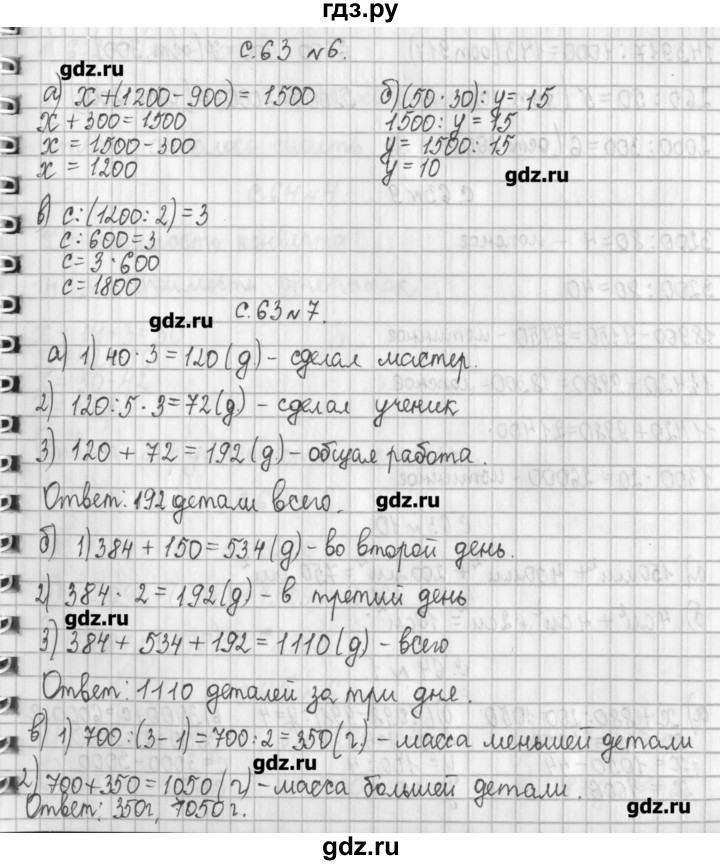 гдз.ру
с.63 №6.
gdz.ru
а) x+(1200-900)=1500
x+300=1500
x=1500-300
x=1200
б)(50·30):y=15
1500:y=15
y=1500:15
y=10
gdz.ru
в) c:(1200:2)=3
c:600=3
c=3·600
c=1800
gdz.ru
с.63№7.
а) 1) 40·3=120(д)- сделал мастер.
2) 120:5·3=72(д) - сделал ученик
3) 120+72=192(д)-общая работа.
Ответ:192 детали всего.
gdz.ru
б) 1)384+150=534(д)-во второй день.
2) 384·2=192(д)-в третий день
gdz.ru
3) 384+534+192=1110(д)-всего
Ответ:1110 деталей за три дне.
в) 1) 700:(3-1)=700:2=350(г.)-масса меньшей детали
gdz.ru
2)700+350=1050(г)-масса большей детали.
Ответ: 350г, 1050г.
gdz.ru
gdz.ru